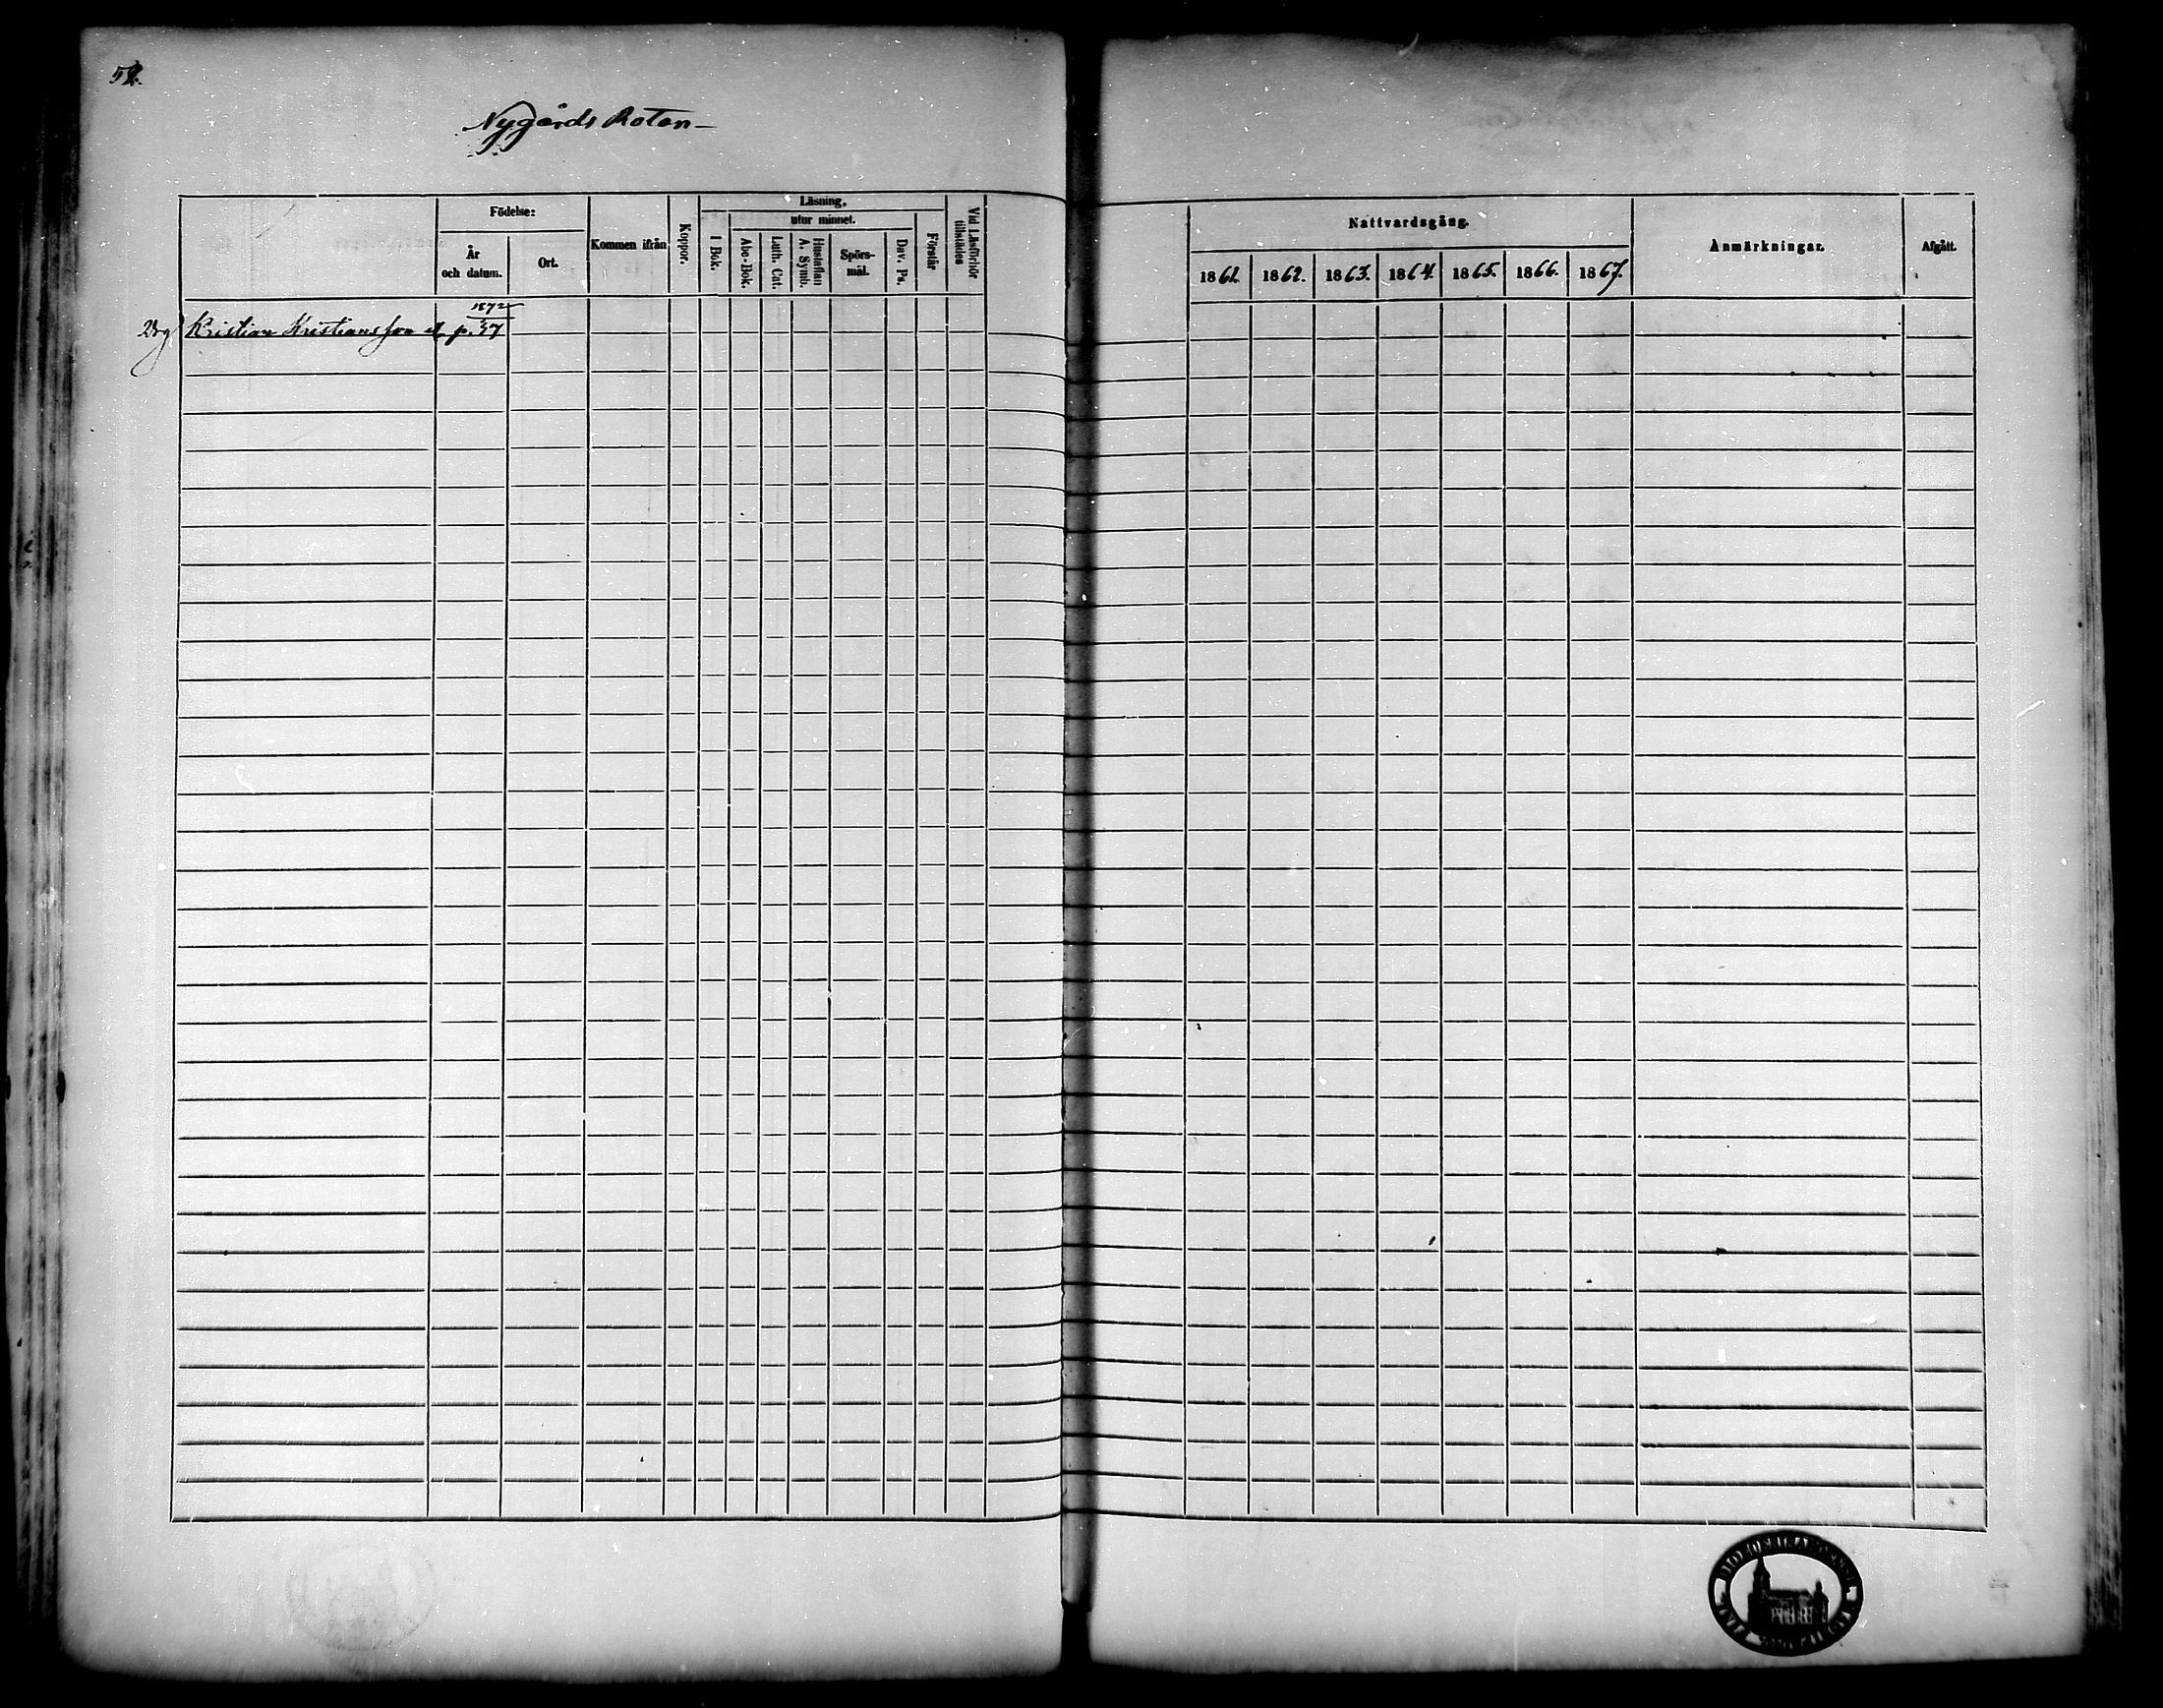 52.
Nygårds Roten
Födelse:
År och datum.
Ort.
Kommen ifrån
Koppor.
Läsning,
I Bok.
utur minnet.
Abc-Bok.
Luth. Cat.
Hustaflan A. Symb.
Spörs-mål.
Dav. Ps.
Förstår
Vid Läsförhör tillstädes
Nattvardsgång.
1861. 1862. 1863. 1864. 1865. 1866. 1867.
Anmärkningar.
Afgått.
1872
Kristian Kristiansson p. 37